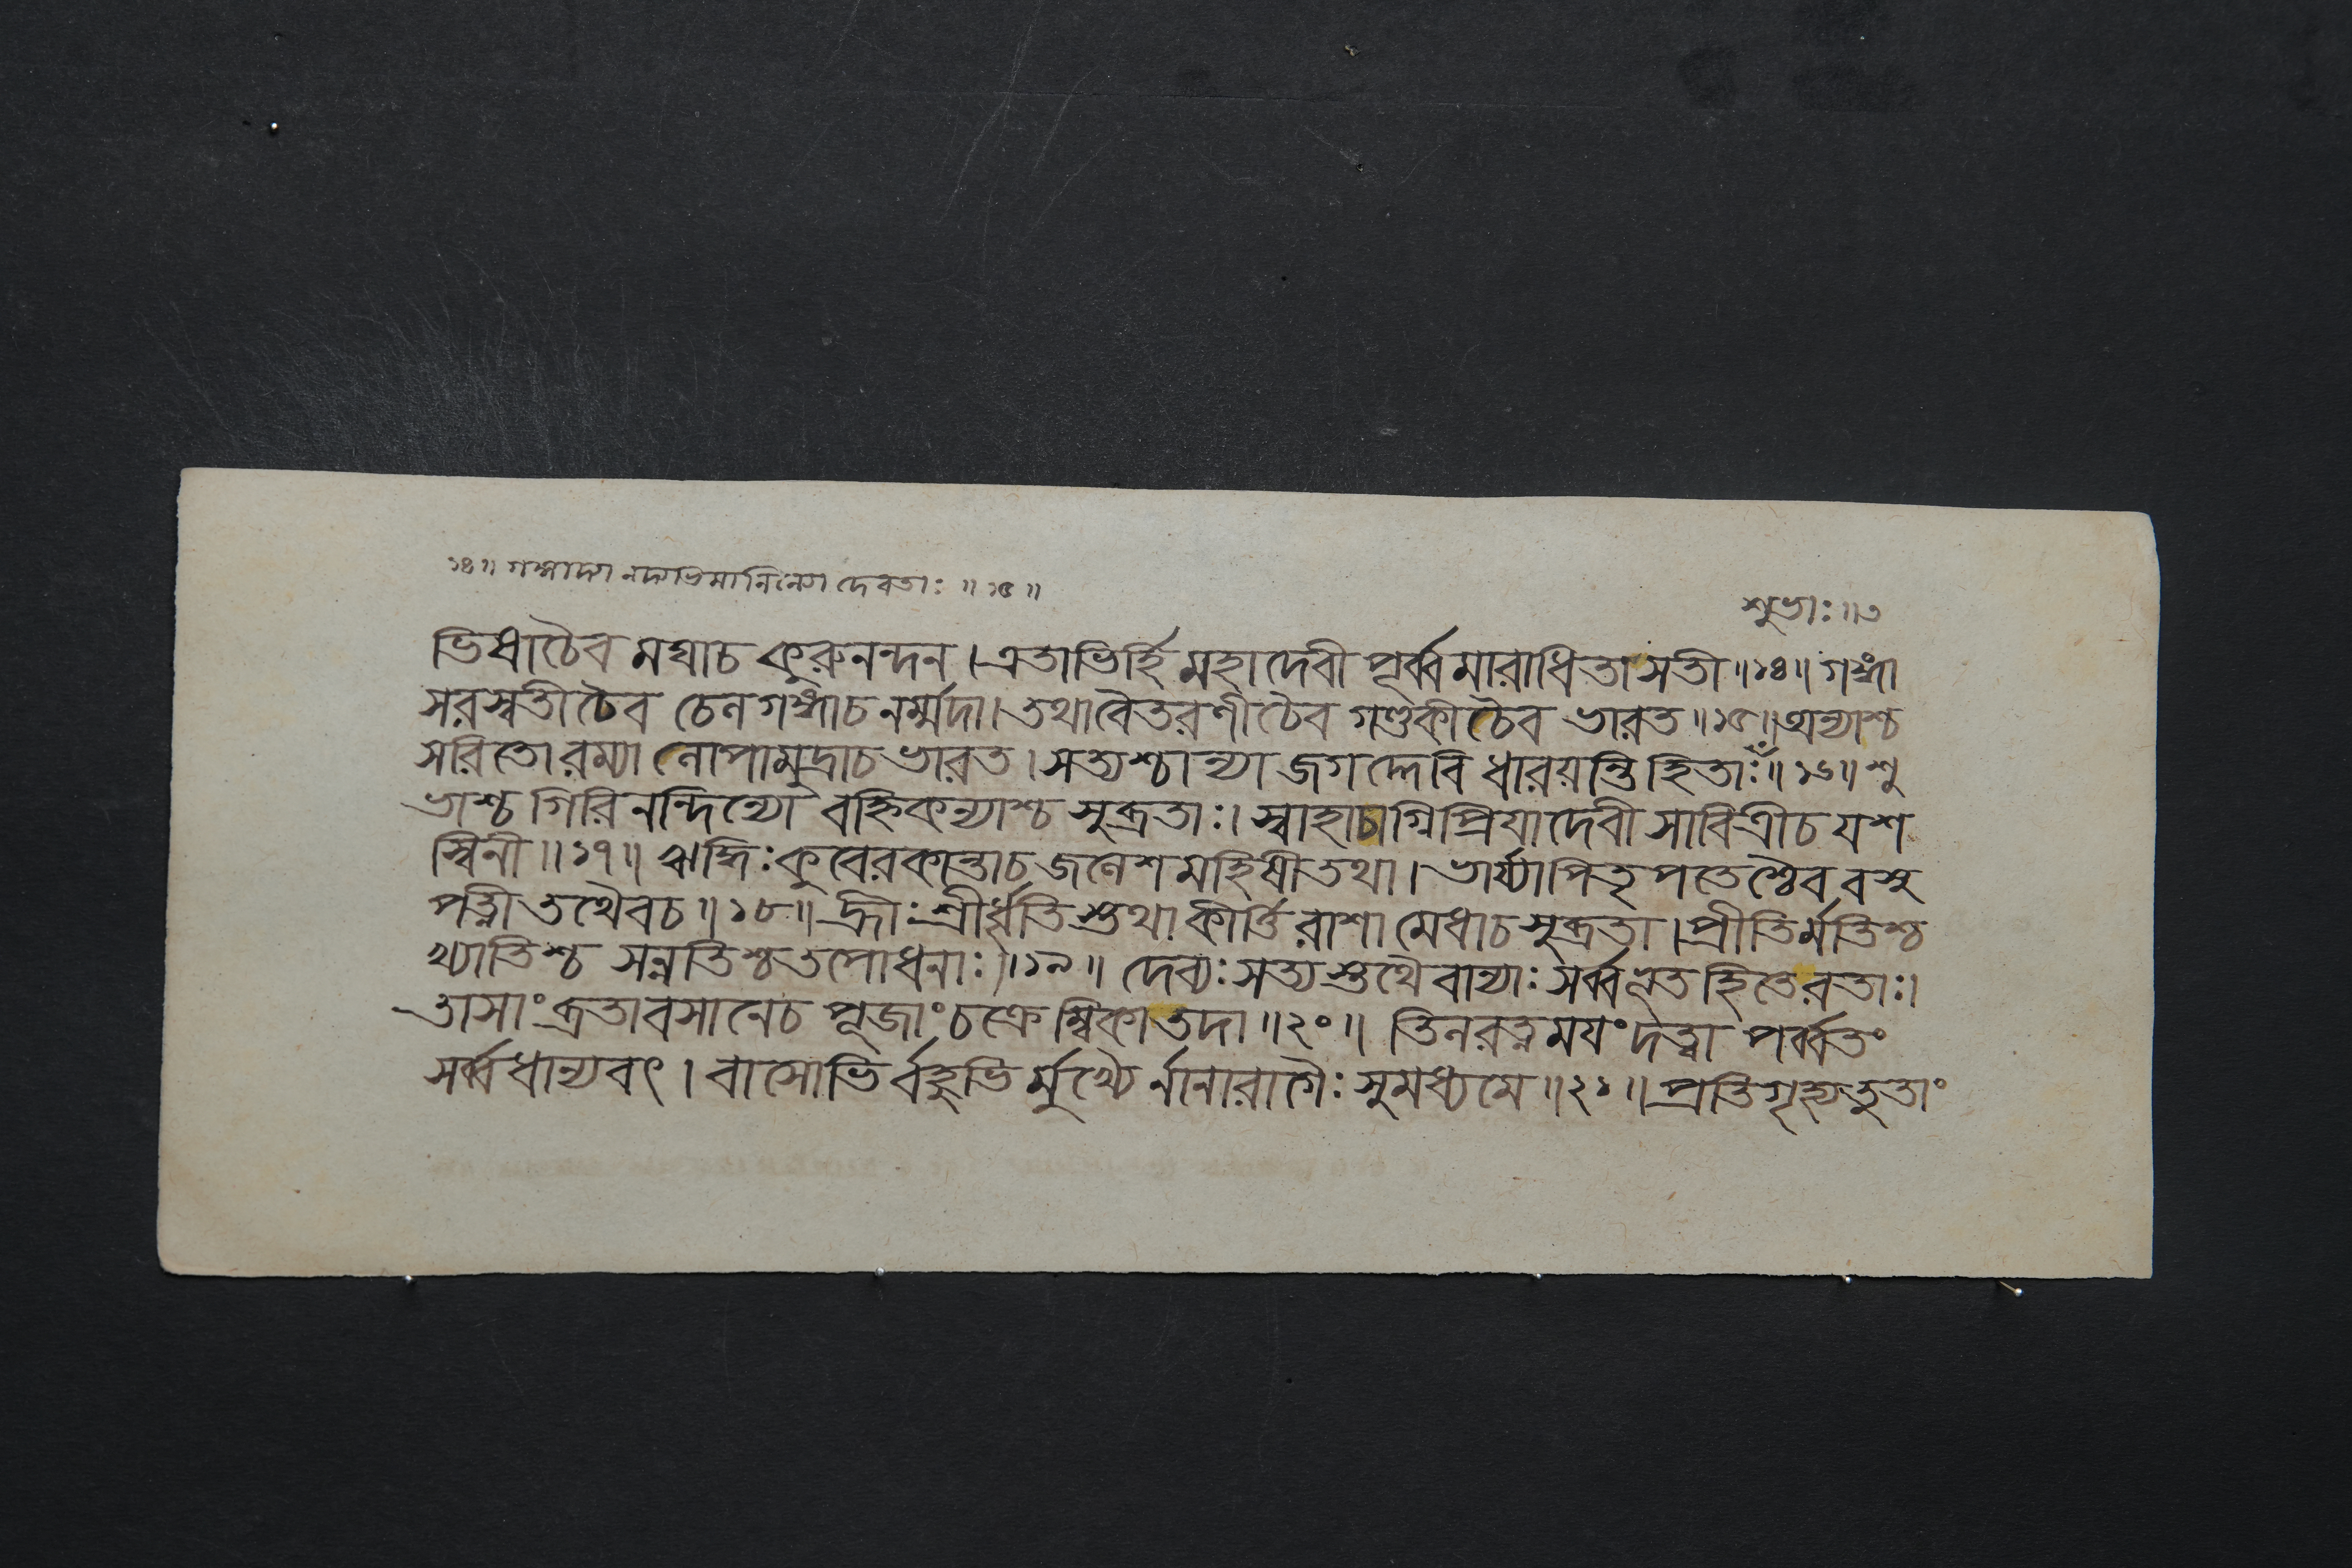 ১৪॥ গঙ্গাদ্যা নদ্যভিমানিন্যো দেবতাঃ ॥ ১৫ ॥
শুভাঃ ॥ ৩
ভিধাচৈব মঘাচ কুরুনন্দন । এতাভির্হি মহাদেবী পূর্ব্বমারাধিতা সতী ॥ ১৪ ॥ গঙ্গা
সরস্বতী চৈব চেন গঙ্গাচ নর্ম্মদা । তথা বৈতরণী চৈব গণ্ডকী চৈব ভারত ॥ ১৫ ॥ অন্যাশ্চ
সরিতো রম্যা নোপামুদ্রাচ ভারত । সত্যশ্চান্যা জগদ্দেবি ধারয়ন্তি হিতাঃ ॥ ১৬ ॥ শু
ভাশ্চ গিরিনন্দিন্যো বহ্নিকন্যাশ্চ সুব্রতাঃ । স্বাহাচাগ্নিপ্রিযাদেবী সাবিত্রীচ যশ
স্বিনী ॥ ১৭ ॥ ঋদ্ধিঃ কুবেরকান্তাচ জনেশমহিষী তথা । ভার্য্যা পিতৃপতেশ্চৈব বসু
পত্নী তথৈবচ ॥ ১৮ ॥ হ্রীঃ শ্রীর্ধৃতিস্তথা কীর্ত্তিরাশা মেধাচ সুব্রতা । প্রীতির্মতিশ্চ
খ্যাতিশ্চ সন্নতিশ্চ তপোধনাঃ ॥ ১৯ ॥ দেব্যঃ সত্যস্তথৈবান্যাঃ সর্ব্বভূতহিতে রতাঃ ।
তাসাং ব্রতাবসানেচ পূজাং চক্রেম্বিকা তদা ॥ ২০ ॥ তিনরত্নময়ং দত্ত্বা পর্ব্বতং
সর্ব্বধান্যবৎ । বাসোভির্বহুভির্মুখ্যৈর্নানারাগৈঃ সুমধ্যমে ॥ ২১ ॥ প্রতিগৃহ্যতুতাং